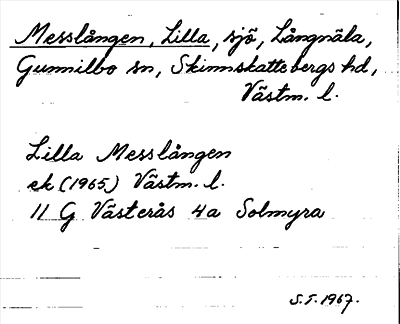 Messlången, Lilla, sjö, Långnäla,
Gunnilbo sn, Skinnskattebergs hd,
Västm. l.
Lilla Messlången
ek (1965) Västm. l.
11 G Västerås 4a Solmyra
S.F. 1967.